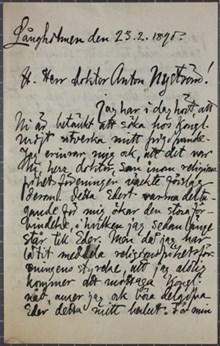 Långholmen den 23.2.1890.
H. Herr doktor Anton Nyström!
Jag har i dag hört att
Ni är betänkt att söka hos Kongl.
Majt utverka mitt frigifvande.
Jag erinrar mig ock, att det var
Ni, herr doktor, som inom religions
frihetsföreningen väckte förslag
derom. Detta Edert varma delta-
gande för mig ökar den stora för-
bindelse, i hvilken jag sedan länge
står till Eder. Men då jag har
låtit meddela religionsfrihetsför-
eningens styrelse, att jag aldrig
kommer att mottaga Kongl.
nåd, anser jag ock böra delgifva
Eder detta mitt beslut. För min